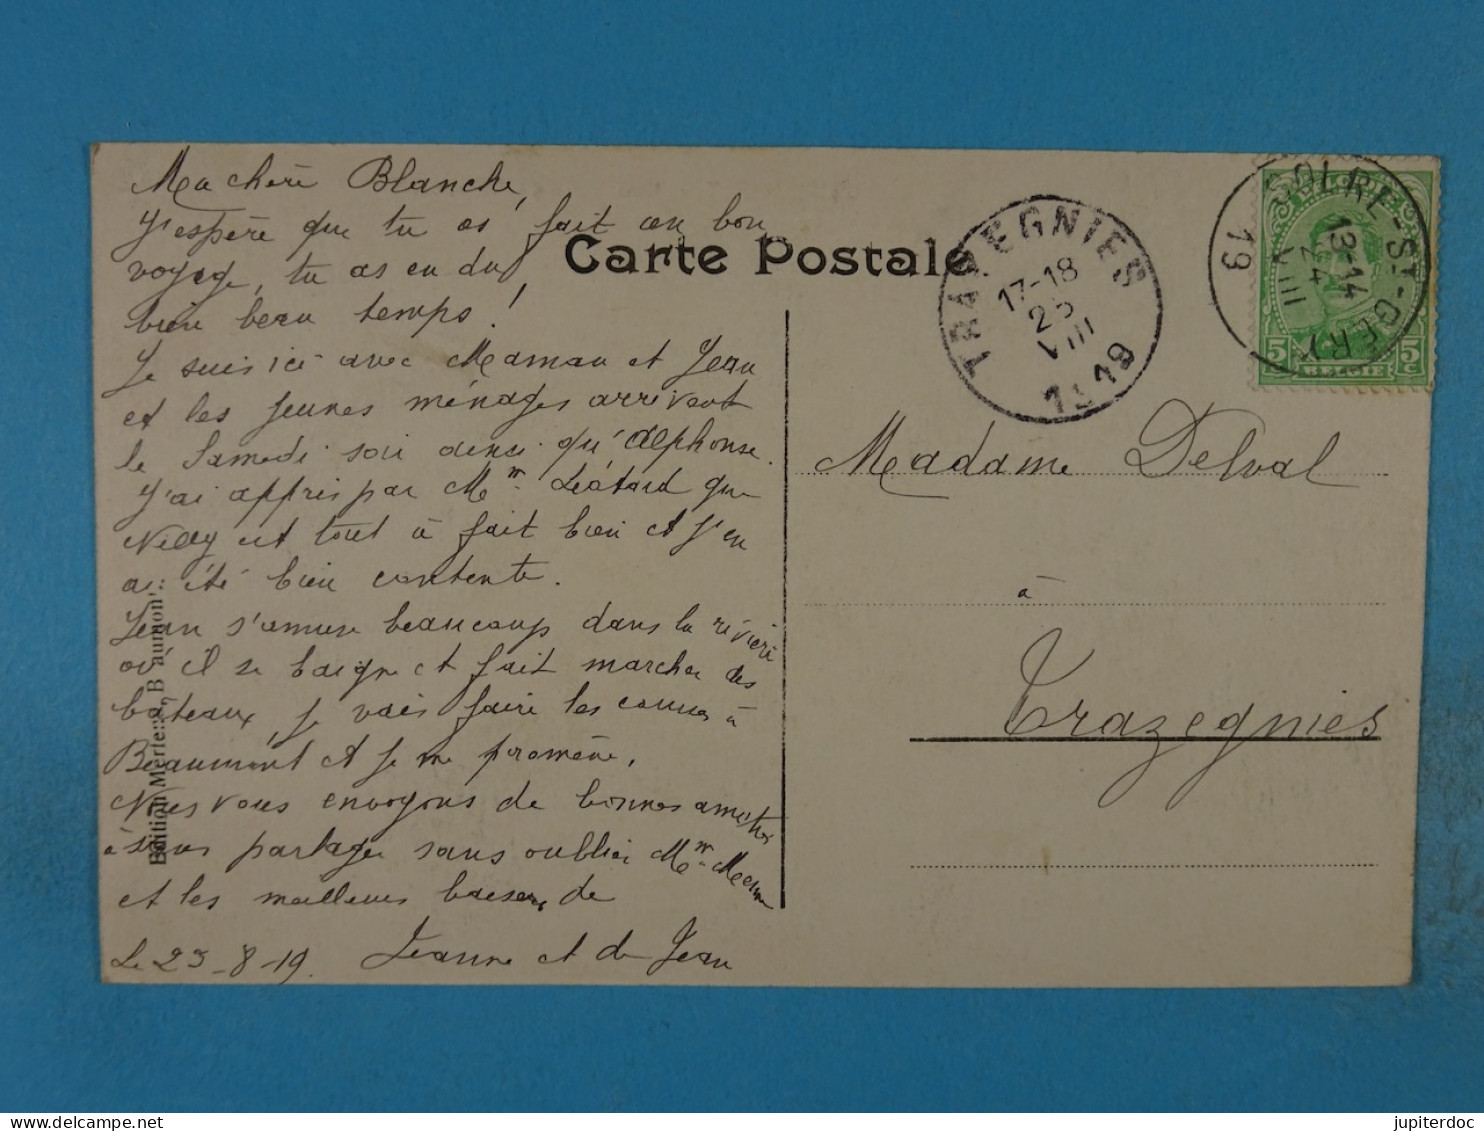 Ma chère Blanche,
J'espère que tu as fait un bon
voyage, tu as eu du
bien beau temps!
Je suis ici avec Maman et Jean
et les jeunes ménages arrivent
le Samedi soir ainsi qu'Alphonse.
J'ai appris par Mme Liétard que
Nelly est tout à fait bien et j'en
ai été bien contente.
Jean s'amuse beaucoup dans la rivière
où il se baigne et fait marcher des
bateaux, je vais faire les courses à
Beaumont et je me promène.
Nous vous envoyons de bonnes amitiés
à vous partager sans oublier Mme
et les meilleurs baisers de
Jeanne et de Jean
Le 23-8-19.
Edition Merle
Carte Postale
TRAZEGNIES
17-18
25
VIII
1919
SOLRE-ST-GERY
13-14
24
VIII
19
5 BELGIE 5
c
Madame Delval
à
Trazegnies
jupiterdoc